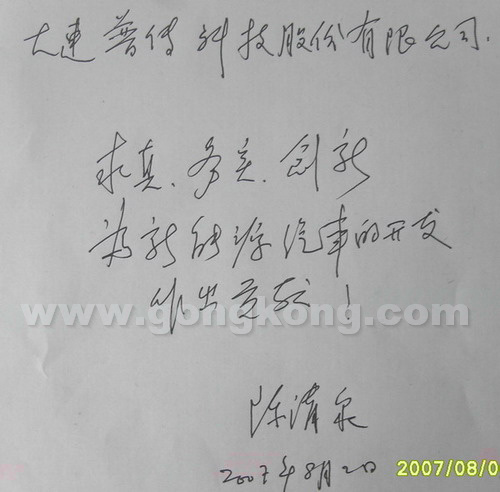 大连普传科技股份有限公司.
求真、务实、创新
为新能源汽车的开发
作出贡献！
www.gongkong.com
陈清泉
2007年8月2日
2007/08/0